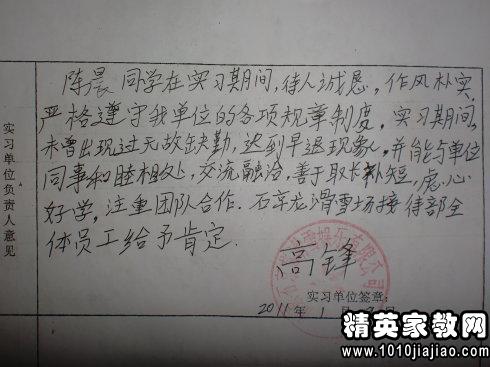 实习单位负责人意见
陈晨同学在实习期间,待人诚恳,作风朴实,
严格遵守我单位的各项规章制度。实习期间,
未曾出现过无故缺勤,达到早退现象,并能与单位
同事和睦相处,交流融洽,善于取长补短,虚心
好学,注重团队合作.石京龙滑雪场接待部全
体员工给予肯定.
高锋
实习单位签章:
2011年1月 日
精英家教网
www.1010jiajiao.com